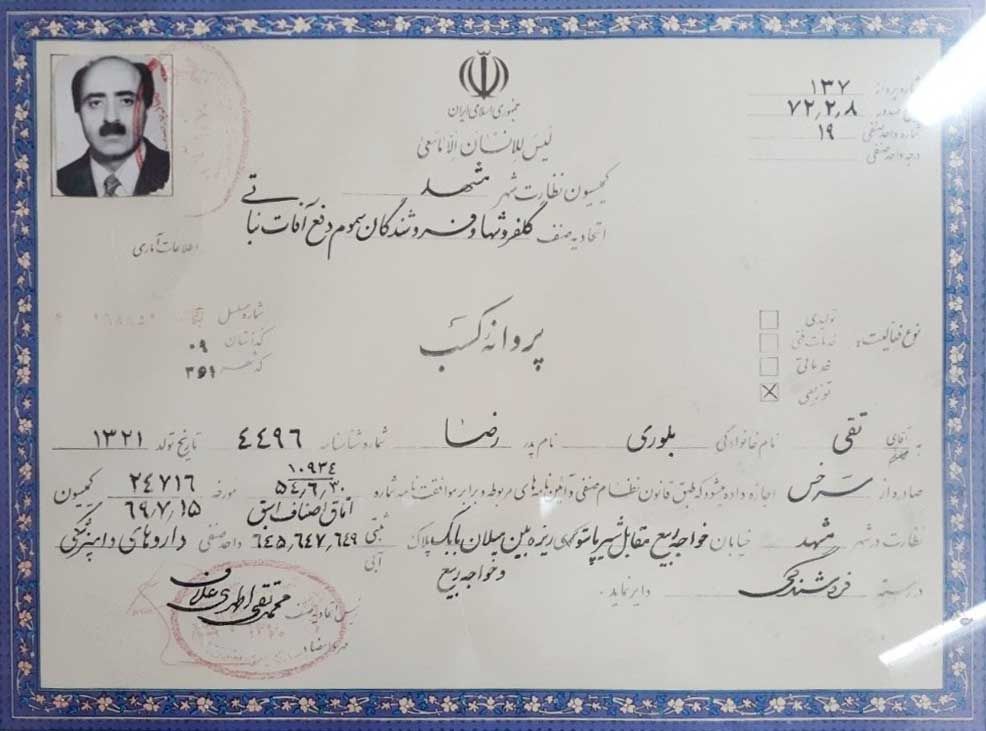 جمهوری اسلامی ایران
لیس للانسان الا ما سعی
کمیسیون نظارت شهر مشهد
اتحادیه صنف گلفروشها و فروشندگان سموم دفع آفات نباتی
شماره پروانه ۱۳۷
۷۲٫۲٫۸
شماره واحد صنفی ۱۹
درجه واحد صنفی
اطلاعات آماری
شماره مسلسل
کد استان ۰۹
کد شهر ۳۵۱
پروانه کسب
نوع فعالیت:
تولیدی
خدمات فنی
خدماتی
توزیعی
به آقای تقی نام خانوادگی بلوری نام پدر رضا شماره شناسنامه ۴۴۹۶ تاریخ تولد ۱۳۲۱
صادره از سرخس اجازه داده میشود که طبق قانون نظام صنفی و آئین نامه‌های مربوطه و برابر موافقت نامه شماره ۱۰۹۳۴ ۵۴٫۶٫۳۰ مورخه ۲۴۷۱۶ کمیسیون
اتاق اصناف اسبق ۶۹٫۷٫۱۵
نظارت در شهر مشهد خیابان خواجه ربیع مقابل شیر پاستوریزه بین میلان بابک پلاک ثبتی ۶۴۵٫۶۴۷٫۶۴۹ واحد صنفی داروهای دامپزشکی
و خواجه ربیع آبی
در رسته فروشندگی دایر نماید.
رئیس اتحادیه صنف محمد تقی اطهری علاف
مهر و امضاء